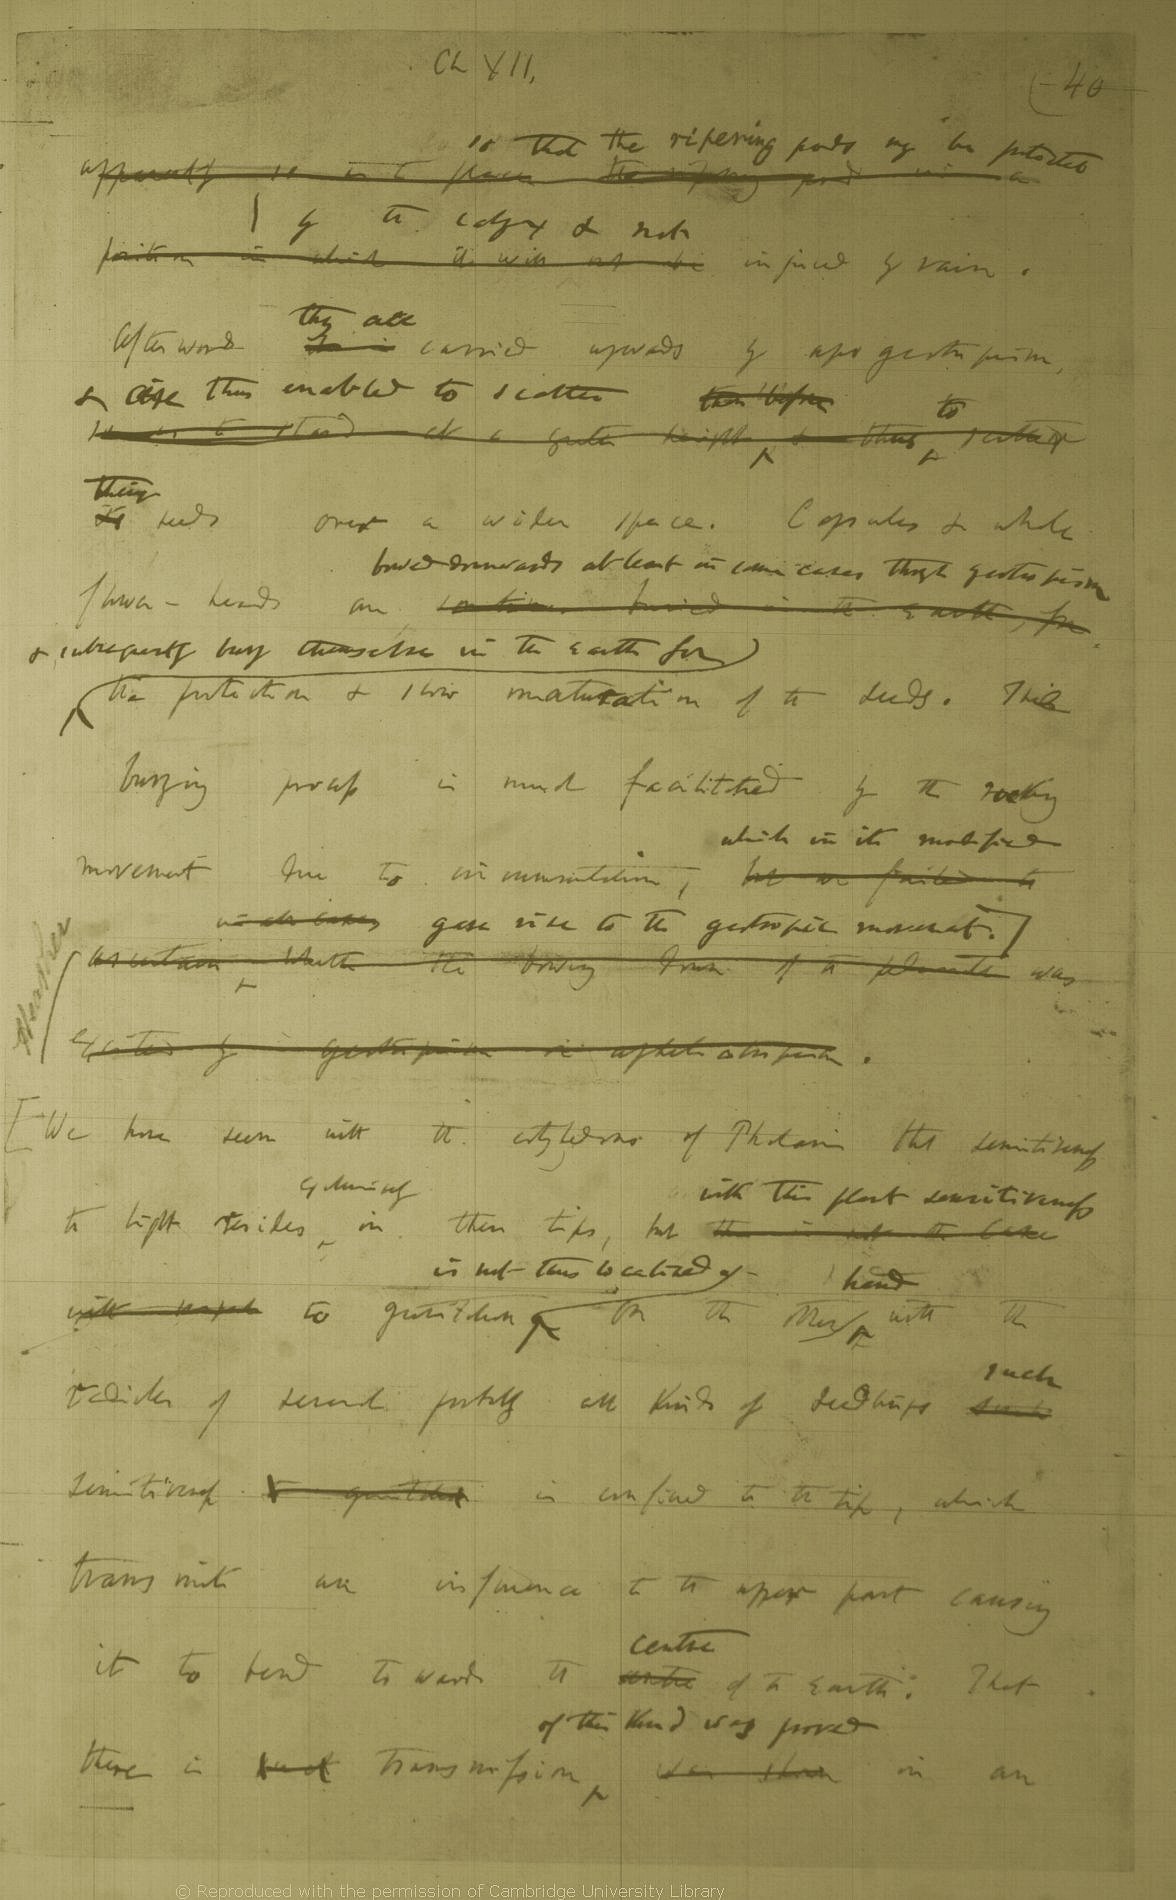 Ch XII,
(40
so that the ripening pods may be protected
apparently so as to place the ripening pod in a
by the calyx & not
position in which it will not be injured by rain.
they are
Afterwards carried upwards by apogeotropism,
& are thus enabled to scatter them before to
so as to stand at a greater height & thus scatter
their
its seeds over a wider space. Capsules & whole
bowed downwards at least in some cases through geotropism
flower-heads are sometimes buried in the earth, for
& subsequently bury themselves in the earth for
the protection & slow maturation of the seeds. This
burying process is much facilitated by the rocking
which in its modified
movement due to circumnutation, but we failed to
in all cases gave rise to the geotropic movement.]
ascertain whether the bowing down of the peduncle was
excited by geotropism or apheliotropism.
[We have seen with the cotyledons of Phalaris that sensitiveness
exclusively with this plant sensitiveness
to light resides in their tips, but this is not the case
is not thus localized hand
with respect to gravitation On the other with the
such
radicles of several probably all kinds of seedlings such
sensitiveness to gravitation is confined to the tip, which
transmits an influence to the upper part causing
centre
it to bend towards the centre of the earth. That
of this kind was proved
there is such transmission, was shown in an
© Reproduced with the permission of Cambridge University Library